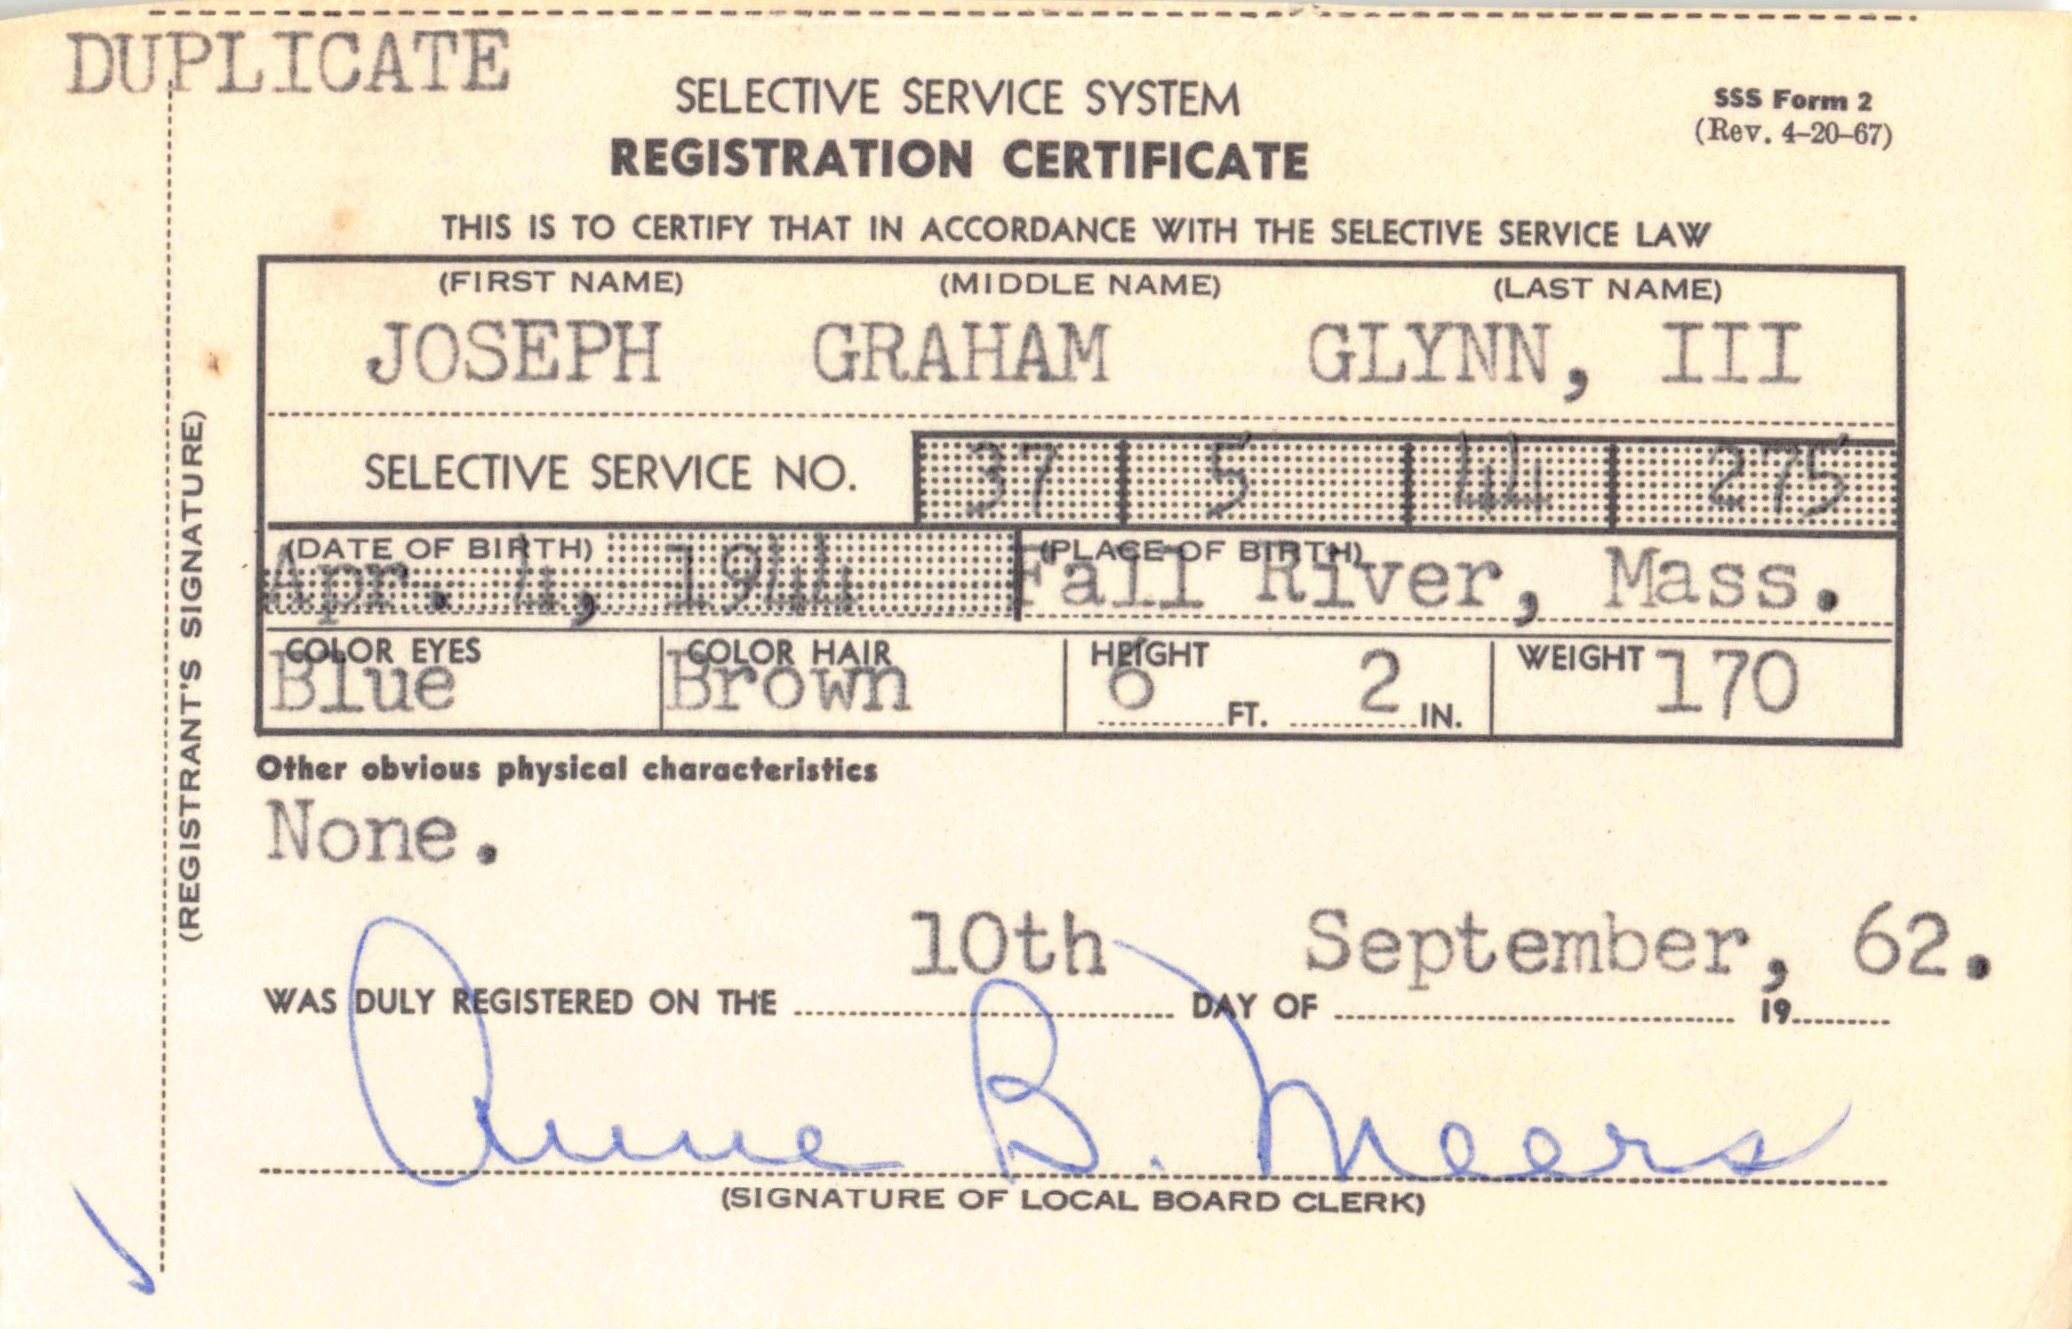 DUPLICATE
SELECTIVE SERVICE SYSTEM
SSS Form 2
REGISTRATION CERTIFICATE
(Rev. 4-20-67)
THIS IS TO CERTIFY THAT IN ACCORDANCE WITH THE SELECTIVE SERVICE LAW
(FIRST NAME) (MIDDLE NAME) (LAST NAME)
JOSEPH GRAHAM GLYNN, III
SELECTIVE SERVICE NO. 37 5 44 275
(DATE OF BIRTH) (PLACE OF BIRTH)
Apr. 4, 1944 Fall River, Mass.
COLOR EYES COLOR HAIR HEIGHT WEIGHT
Blue Brown 6 FT. 2 IN. 170
Other obvious physical characteristics
None.
10th September, 62.
WAS DULY REGISTERED ON THE DAY OF 19
Anne B. Meers
(SIGNATURE OF LOCAL BOARD CLERK)
(REGISTRANT'S SIGNATURE)